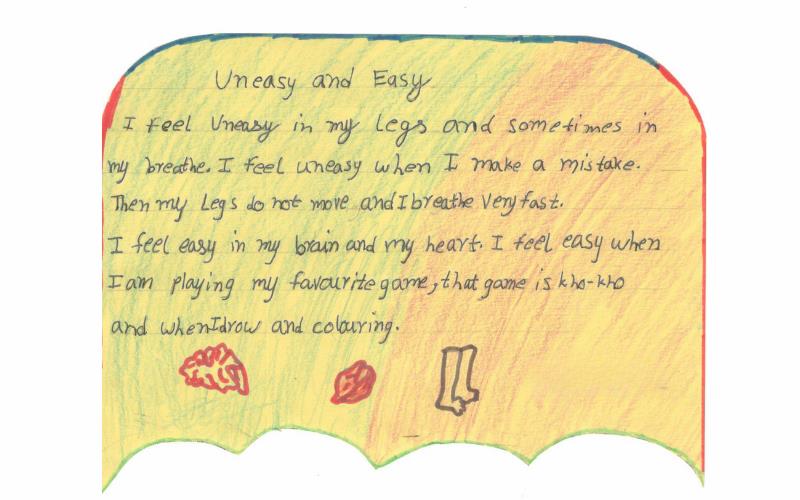 Uneasy and Easy
I feel Uneasy in my Legs and sometimes in
my breathe. I feel uneasy when I make a mistake.
Then my Legs do not move and I breathe Very fast.
I feel easy in my brain and my heart. I feel easy when
I am playing my favourite game, that game is kho-kho
and when I drow and colouring.